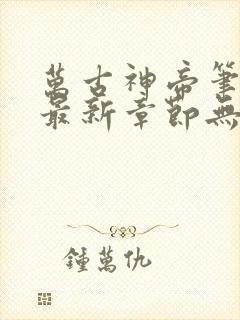 萬古神帝筆
最新章節無
鍾萬仇